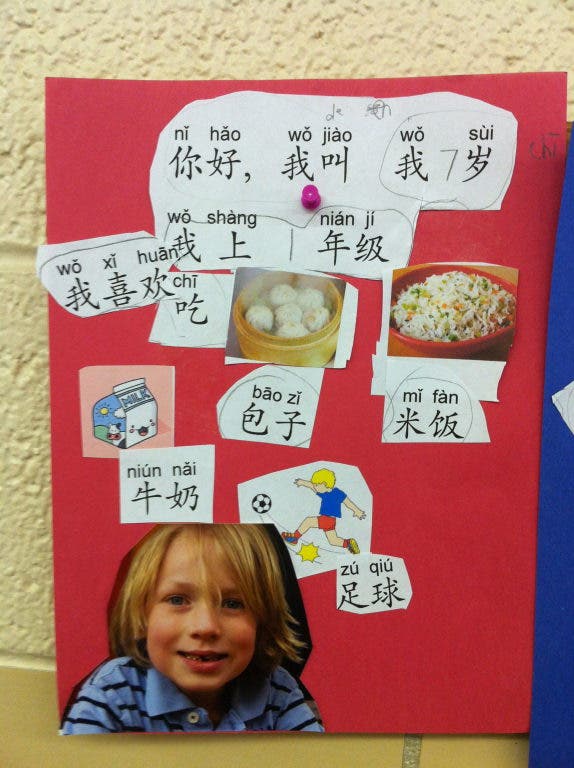 de
nǐ hǎo wǒ jiào wǒ suì
你好，我叫 我 7 岁
chī
wǒ shàng nián jí
我 上 1 年级
wǒ xǐ huān
我喜欢
chī
吃
MILK
bāo zǐ mǐ fàn
包子 米饭
niún nǎi
牛奶
zú qiú
足球